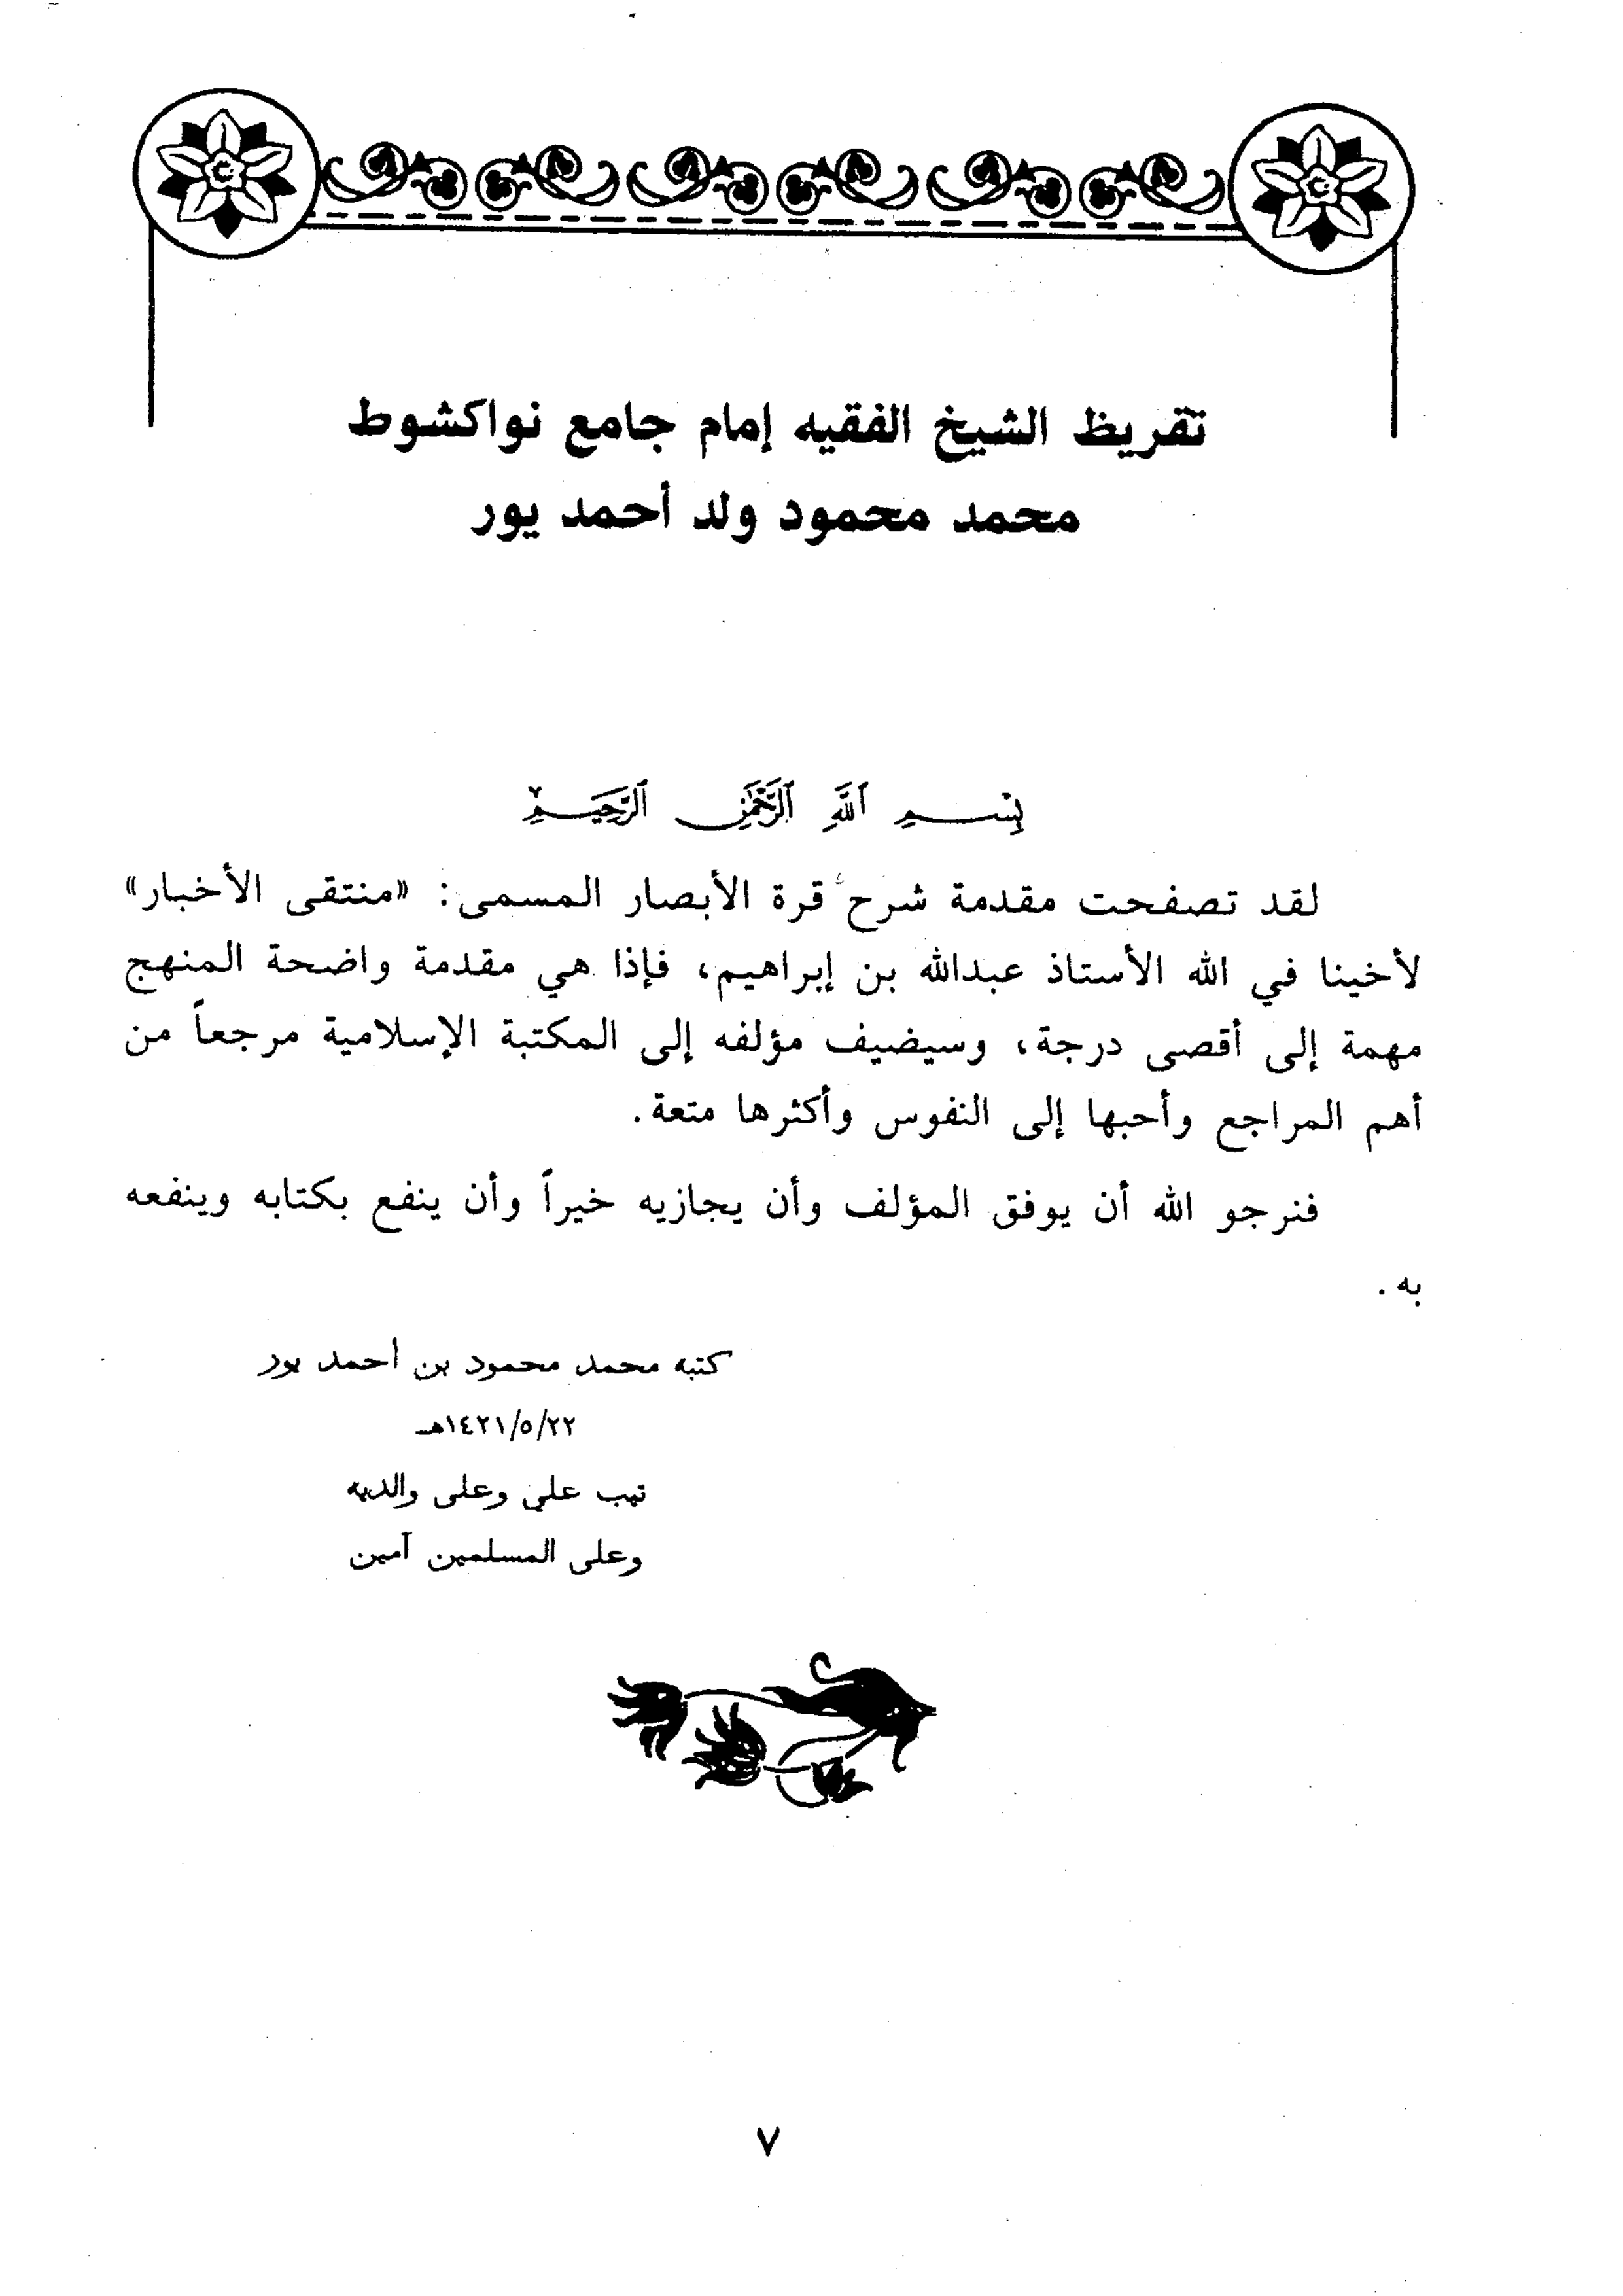 تقريظ الشيخ الفقيه إمام جامع نواكشوط
محمد محمود ولد أحمد يور
بِسْمِ ٱللَّهِ ٱلرَّحْمَٰنِ ٱلرَّحِيمِ
لقد تصفحت مقدمة شرح قرة الأبصار المسمى: «منتقى الأخبار»
لأخينا في الله الأستاذ عبدالله بن إبراهيم، فإذا هي مقدمة واضحة المنهج
مهمة إلى أقصى درجة، وسيضيف مؤلفه إلى المكتبة الإسلامية مرجعاً من
أهم المراجع وأحبها إلى النفوس وأكثرها متعة.
فنرجو الله أن يوفق المؤلف وأن يجازيه خيراً وأن ينفع بكتابه وينفعه
به.
كتبه محمد محمود بن أحمد يور
١٤٢١/٥/٢٢هـ
تيب علي وعلى والديه
وعلى المسلمين آمين
٧